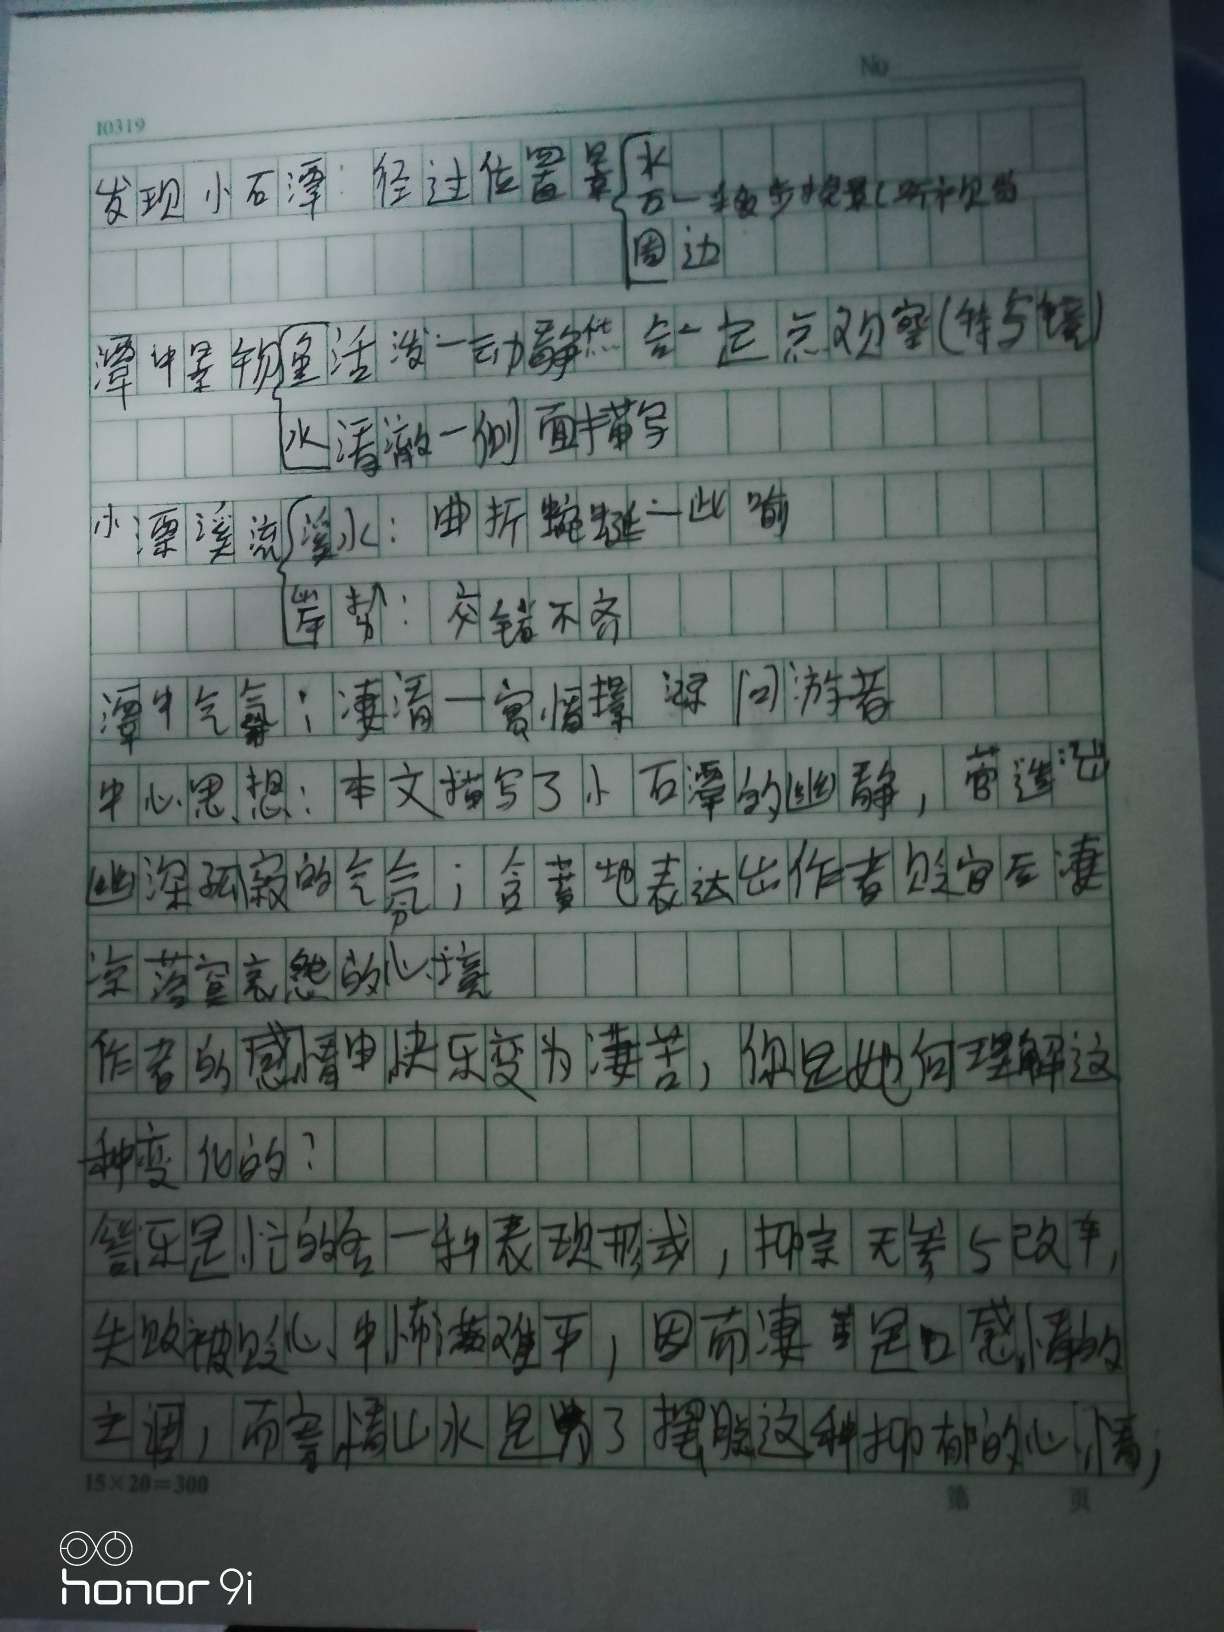 No
10319
发现小石潭：径过位置景 水
石一移步换景(所见为
周边
潭中景物 鱼活泼一动静结合一定点观察(特写镜)
水清澈一侧面描写
小潭溪流 溪水：曲折蜿蜒一比喻
岸势：交错不齐
潭中气氛：凄清一寓情景 游者
中心思想：本文描写了小石潭的幽静，营造出
幽深孤寂的气氛；含蓄地表达出作者贬官后凄
凉落寞哀怨的心境
作者的感情由快乐变为凄苦，你是如何理解这
种变化的？
答乐是忧的另一种表现形式，柳宗元参与改革，
失败被贬心中怖满难平，因而凄苦是口感情的
主调，而寄情山水是为了摆脱这种抑郁的心情；
15×20=300
第 页
honor 9i